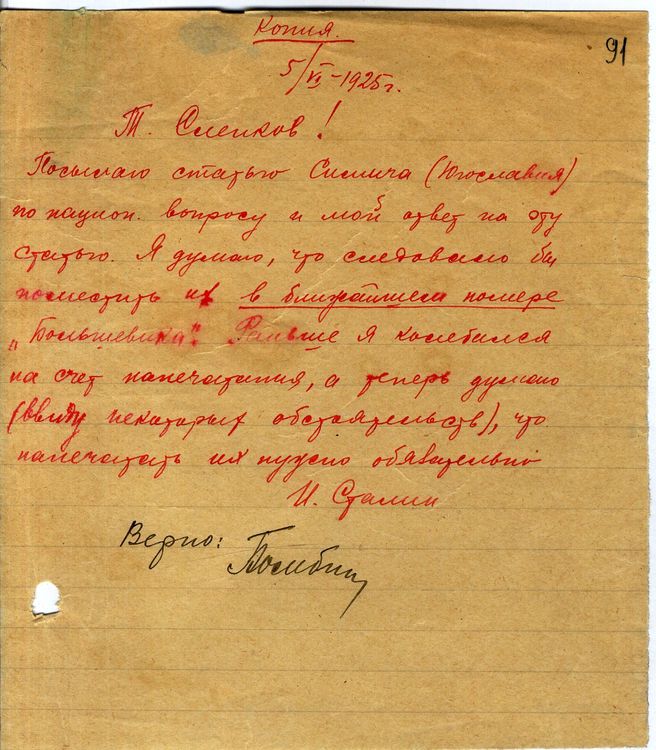 Копия.
91
5/VI-1925г.
Т. Слепков!
Посылаю статью Симича (Югославия)
по национ. вопросу и мой ответ на эту
статью. Я думаю, что следовало бы
поместить их в ближайшем номере
„Большевика". Раньше я колебался
на счет напечатания, а теперь думаю
(ввиду некоторых обстоятельств), что
напечатать их нужно обязательно
И. Сталин
Верно: